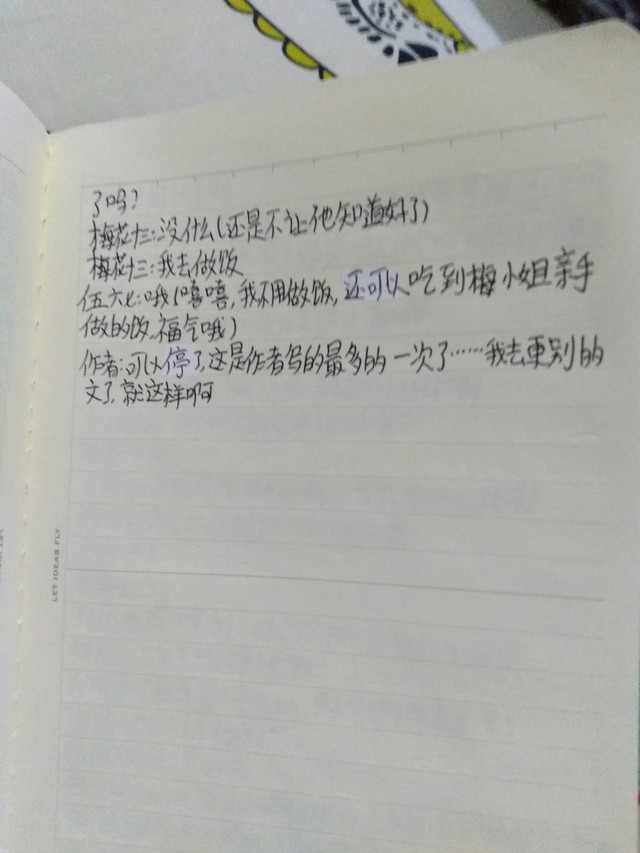 了吗?
梅花十三:没什么(还是不让他知道好了)
梅花十三:我去做饭
伍六七:哦(嘻嘻,我不用做饭,还可以吃到梅小姐亲手
做的饭,福气哦)
作者:可以停了,这是作者写的最多的一次了……我去更别的
文了,就这样啊
LET IDEAS FLY